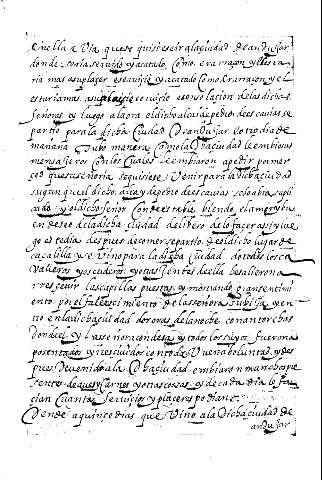 en ella e Via, que se quisiese ir a la çiudad de andujar
donde seria seruido y acatado, como era rraçon, y el esta
ria mas a su plaçer e seruiçio y acatado como era rraçon y el
estaria mas, a su plaçer seruiçio y consolaçion de las dichas
señoras y luego a la ora el dicho alcaide pedro de escauias se
partio para la dicha Ciudad de andujar Lo otro dia de
mañana hubo manera como la dicha çiudad le embio sus
mensajeros con los cuales le embiaron a pedir por mer
çed que su señoria se quisiese Venir para la dicha çiudad
segun que el dicho alcayde pedro de escauias se lo abia supli
cado y el dicho señor Condestable biendo el amor y bu
en deseo de la dicha ciudad delibero de lo facer assi y lue
go ese dia despues de comer se partio del dicho lugar de
caçalilla y se Vino para la dicha çiudad do todos los ca
Valleros y escuderos y otras Jentes de ella le salieron a
rresceuir las capillas puestas y mostrando gran sentimi
ento por el falesçimiento de la señora su hija y en
tro en la dicha çiudad dos oras de la noche con antorchas
donde el y la señora condesa y todos los suyos fueron a
posentados y resceuidos con toda Vuena boluntad, y des
pues de uenido a la dicha çiudad embiaron muchos pre
sentes de aues y carnes y otras cosas, y de cada dia le fa
cian Cuantos seruiçios y plaçeres podian
Dende a quinçe dias que Vino a la dicha çiudad de
andujar